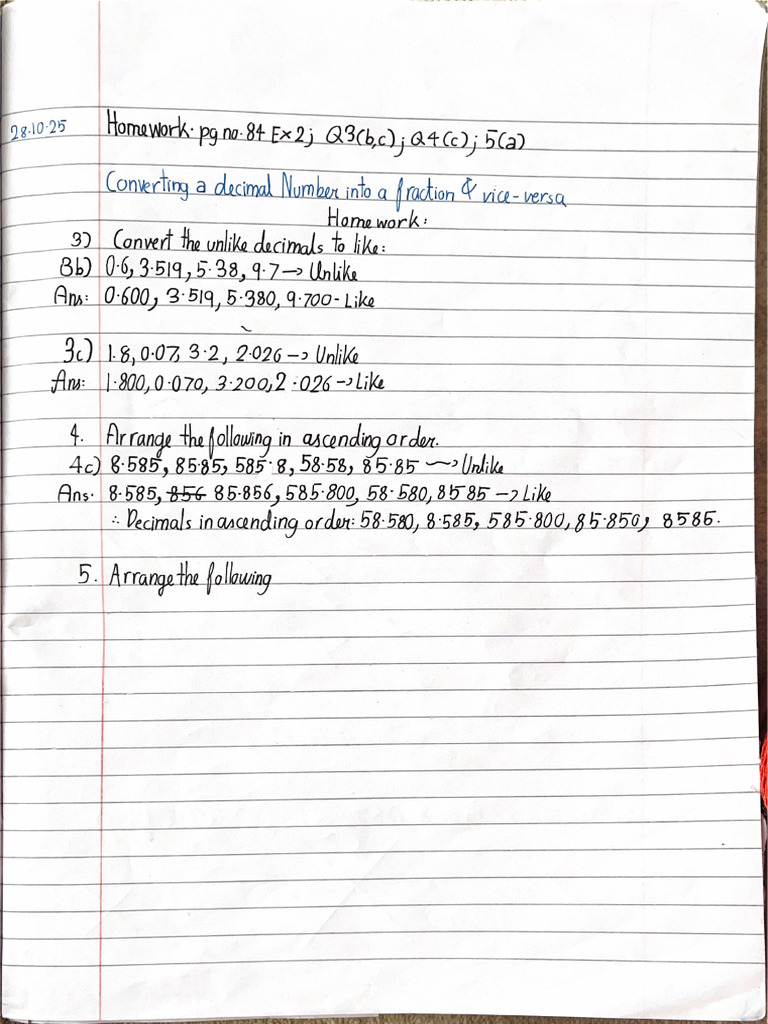 28.10.25 Homework. pg no. 84 Ex 2; Q3(b,c); Q4(c); 5(a)
Converting a decimal Number into a fraction & vice-versa
Homework:
3) Convert the unlike decimals to like:
3b) 0.6, 3.519, 5.38, 9.7 → Unlike
Ans: 0.600, 3.519, 5.380, 9.700 - Like
3c) 1.8, 0.07, 3.2, 2.026 → Unlike
Ans: 1.800, 0.070, 3.200, 2.026 → Like
4. Arrange the following in ascending order.
4c) 8.585, 85.85, 585.8, 58.58, 85.85 → Unlike
Ans. 8.585, 856 85.856, 585.800, 58.580, 8585 → Like
∴ Decimals in ascending order: 58.580, 8.585, 585.800, 85.850, 8585.
5. Arrange the following